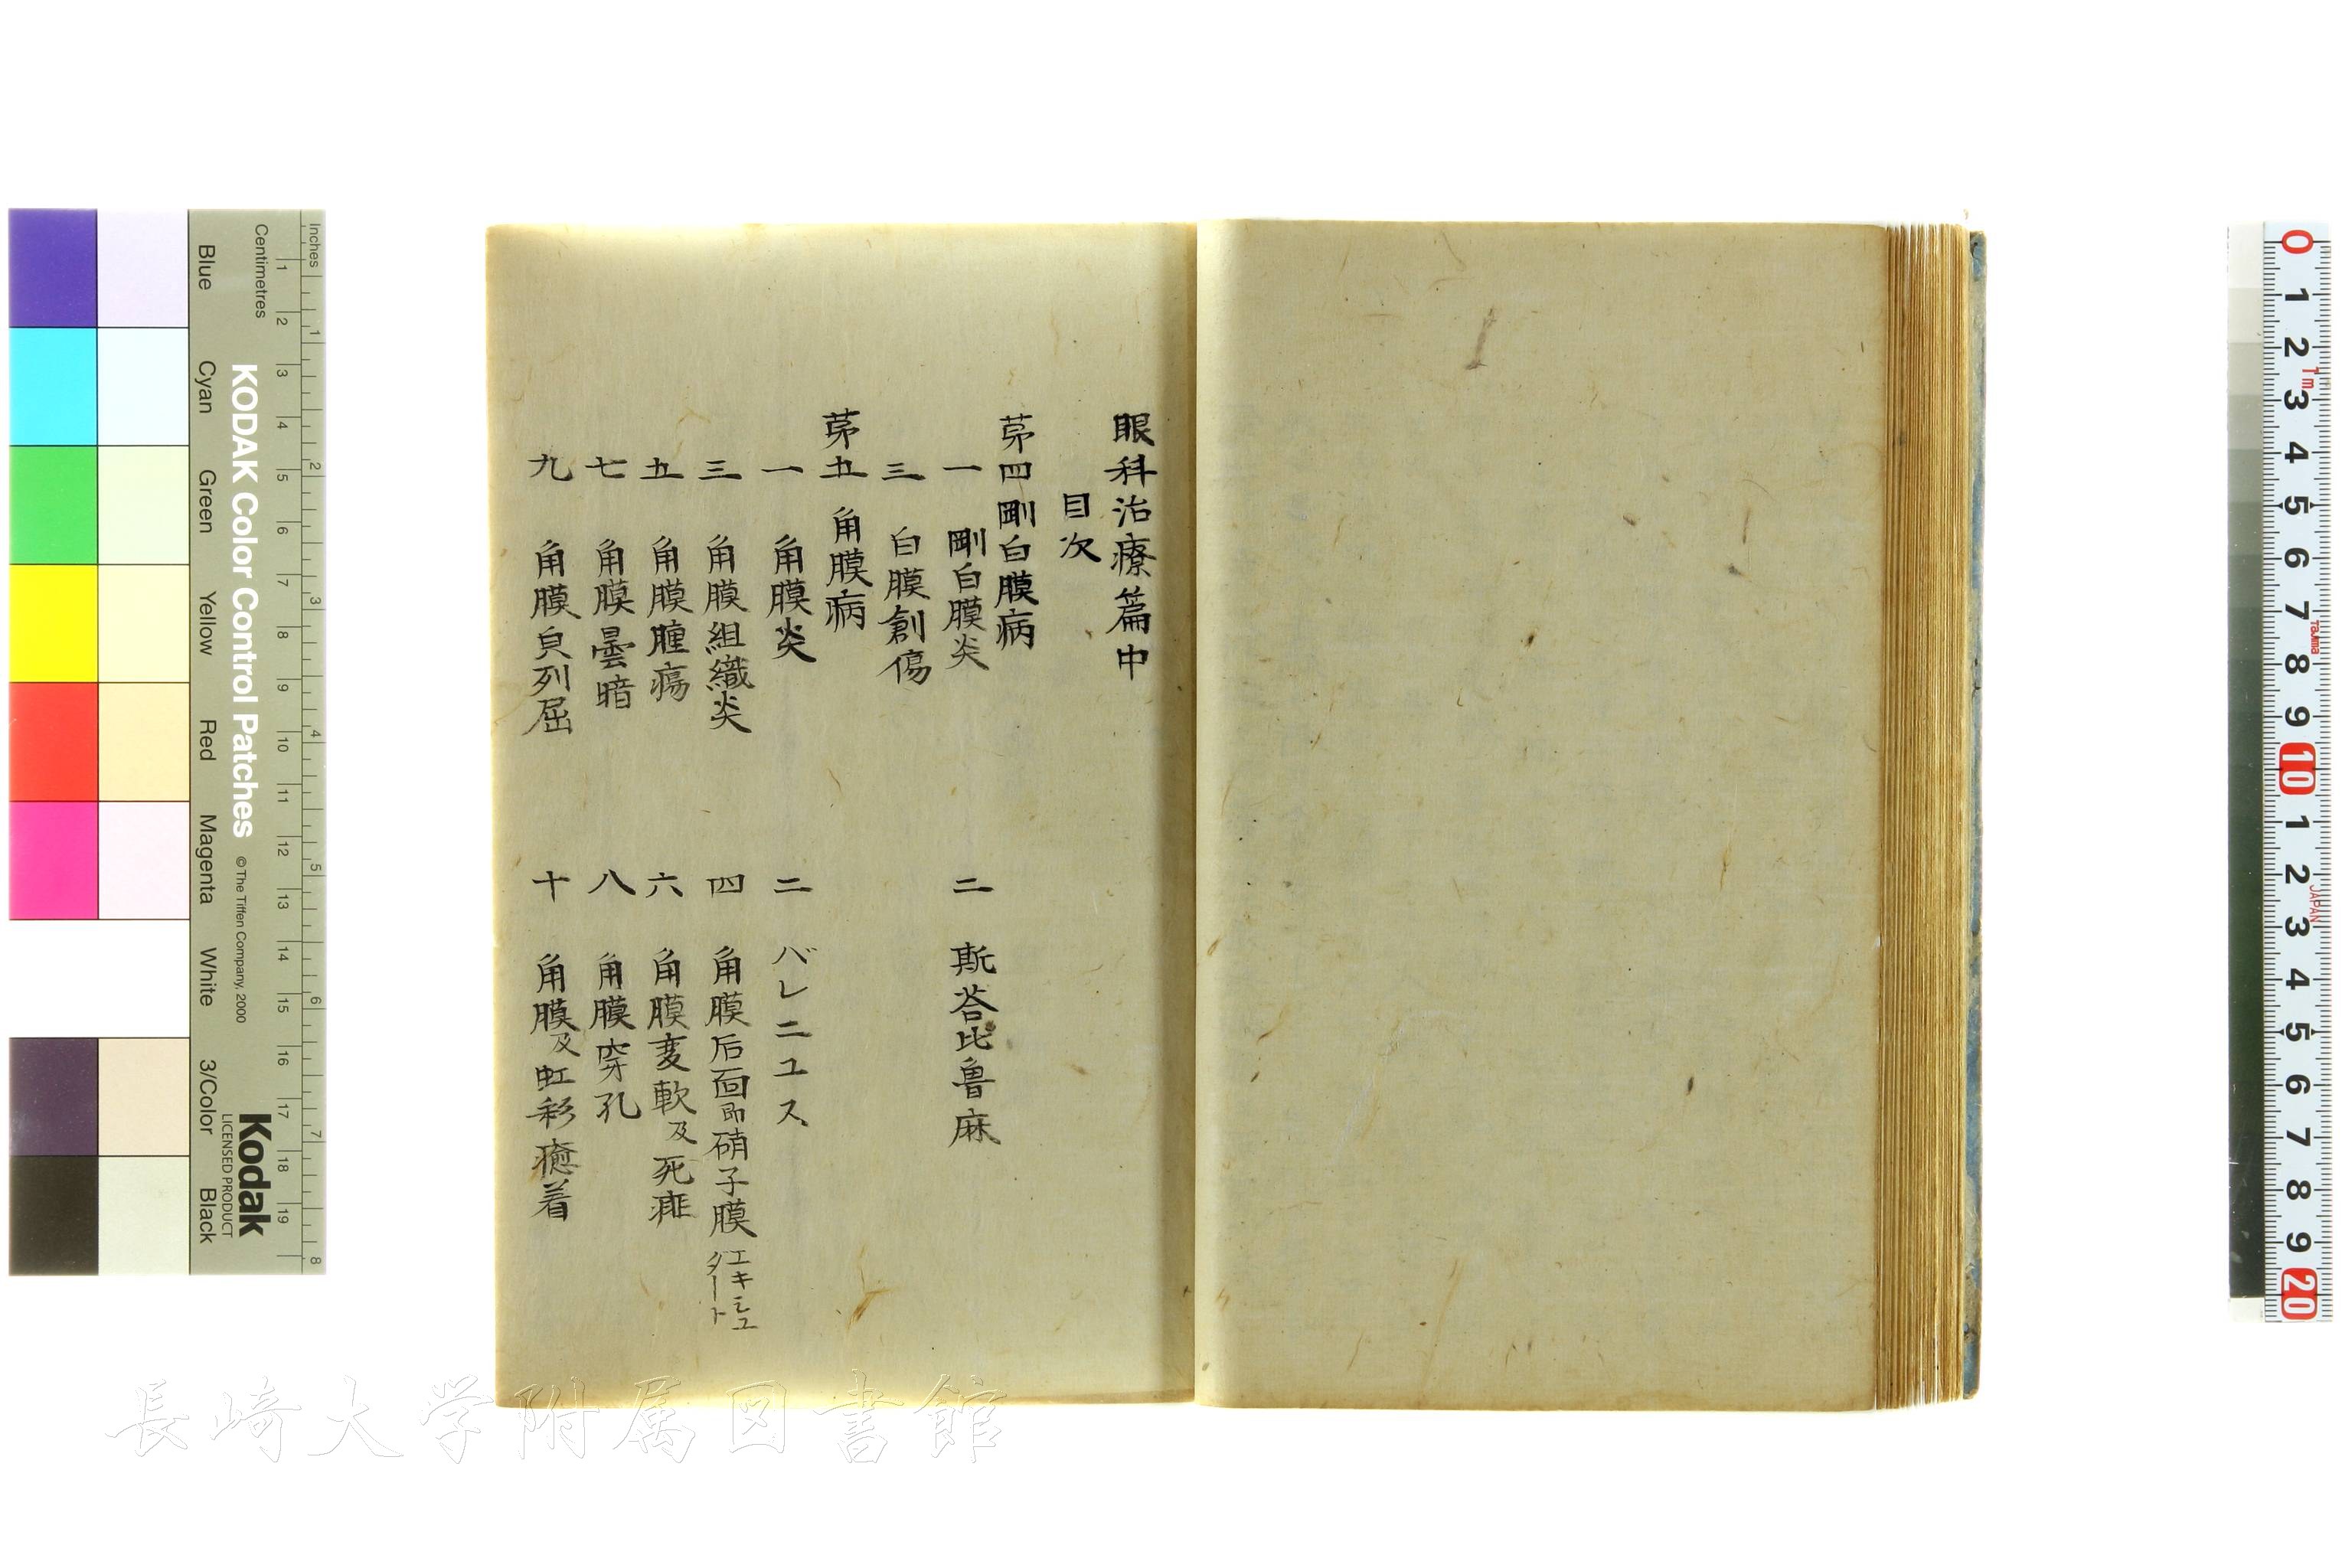 眼科治療篇中
目次
茅四剛白膜病
一 剛白膜炎 二 斯荅比魯麻
三 白膜創傷
茅五 角膜病
一 角膜炎 二 バレニユス
三 角膜組織炎 四 角膜后面即硝子膜 エキシユダート
五 角膜腫瘍 六 角膜変軟及死
七 角膜曇暗 八 角膜穿孔
九 角膜皃列屈 十 角膜及虹彩癒着
長崎大学附属図書館
Inches
Centimetres
KODAK Color Control Patches
© The Tiffen Company, 2000
Kodak
LICENSED PRODUCT
Blue Cyan Green Yellow Red Magenta White 3/Color Black
1 2 3 4 5 6 7 8 9 10 11 12 13 14 15 16 17 18 19
1 2 3 4 5 6 7 8
0 1 2 3 4 5 6 7 8 9 10 1 2 3 4 5 6 7 8 9 20
1m
Tajima
JAPAN